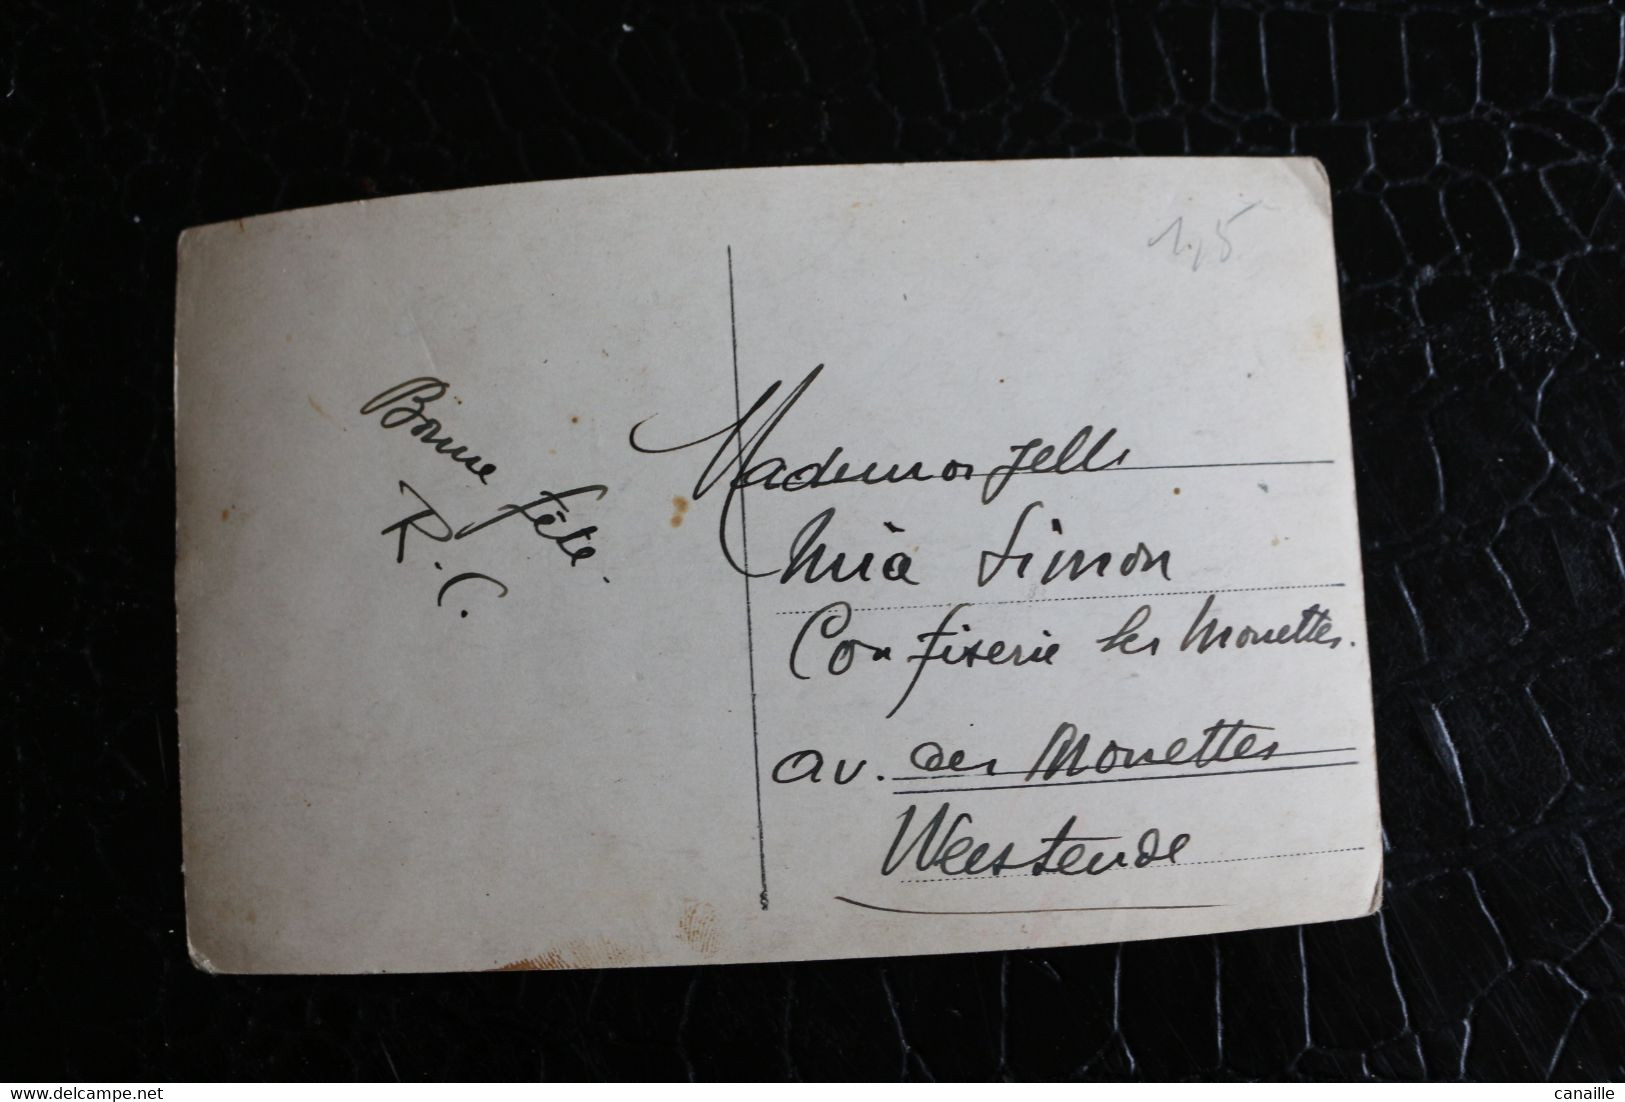 1,5
Bonne fête.
R.C.
Mademoiselle
Mia Simon
Confiserie les Mouettes.
av. des Mouettes
Westende
canaille